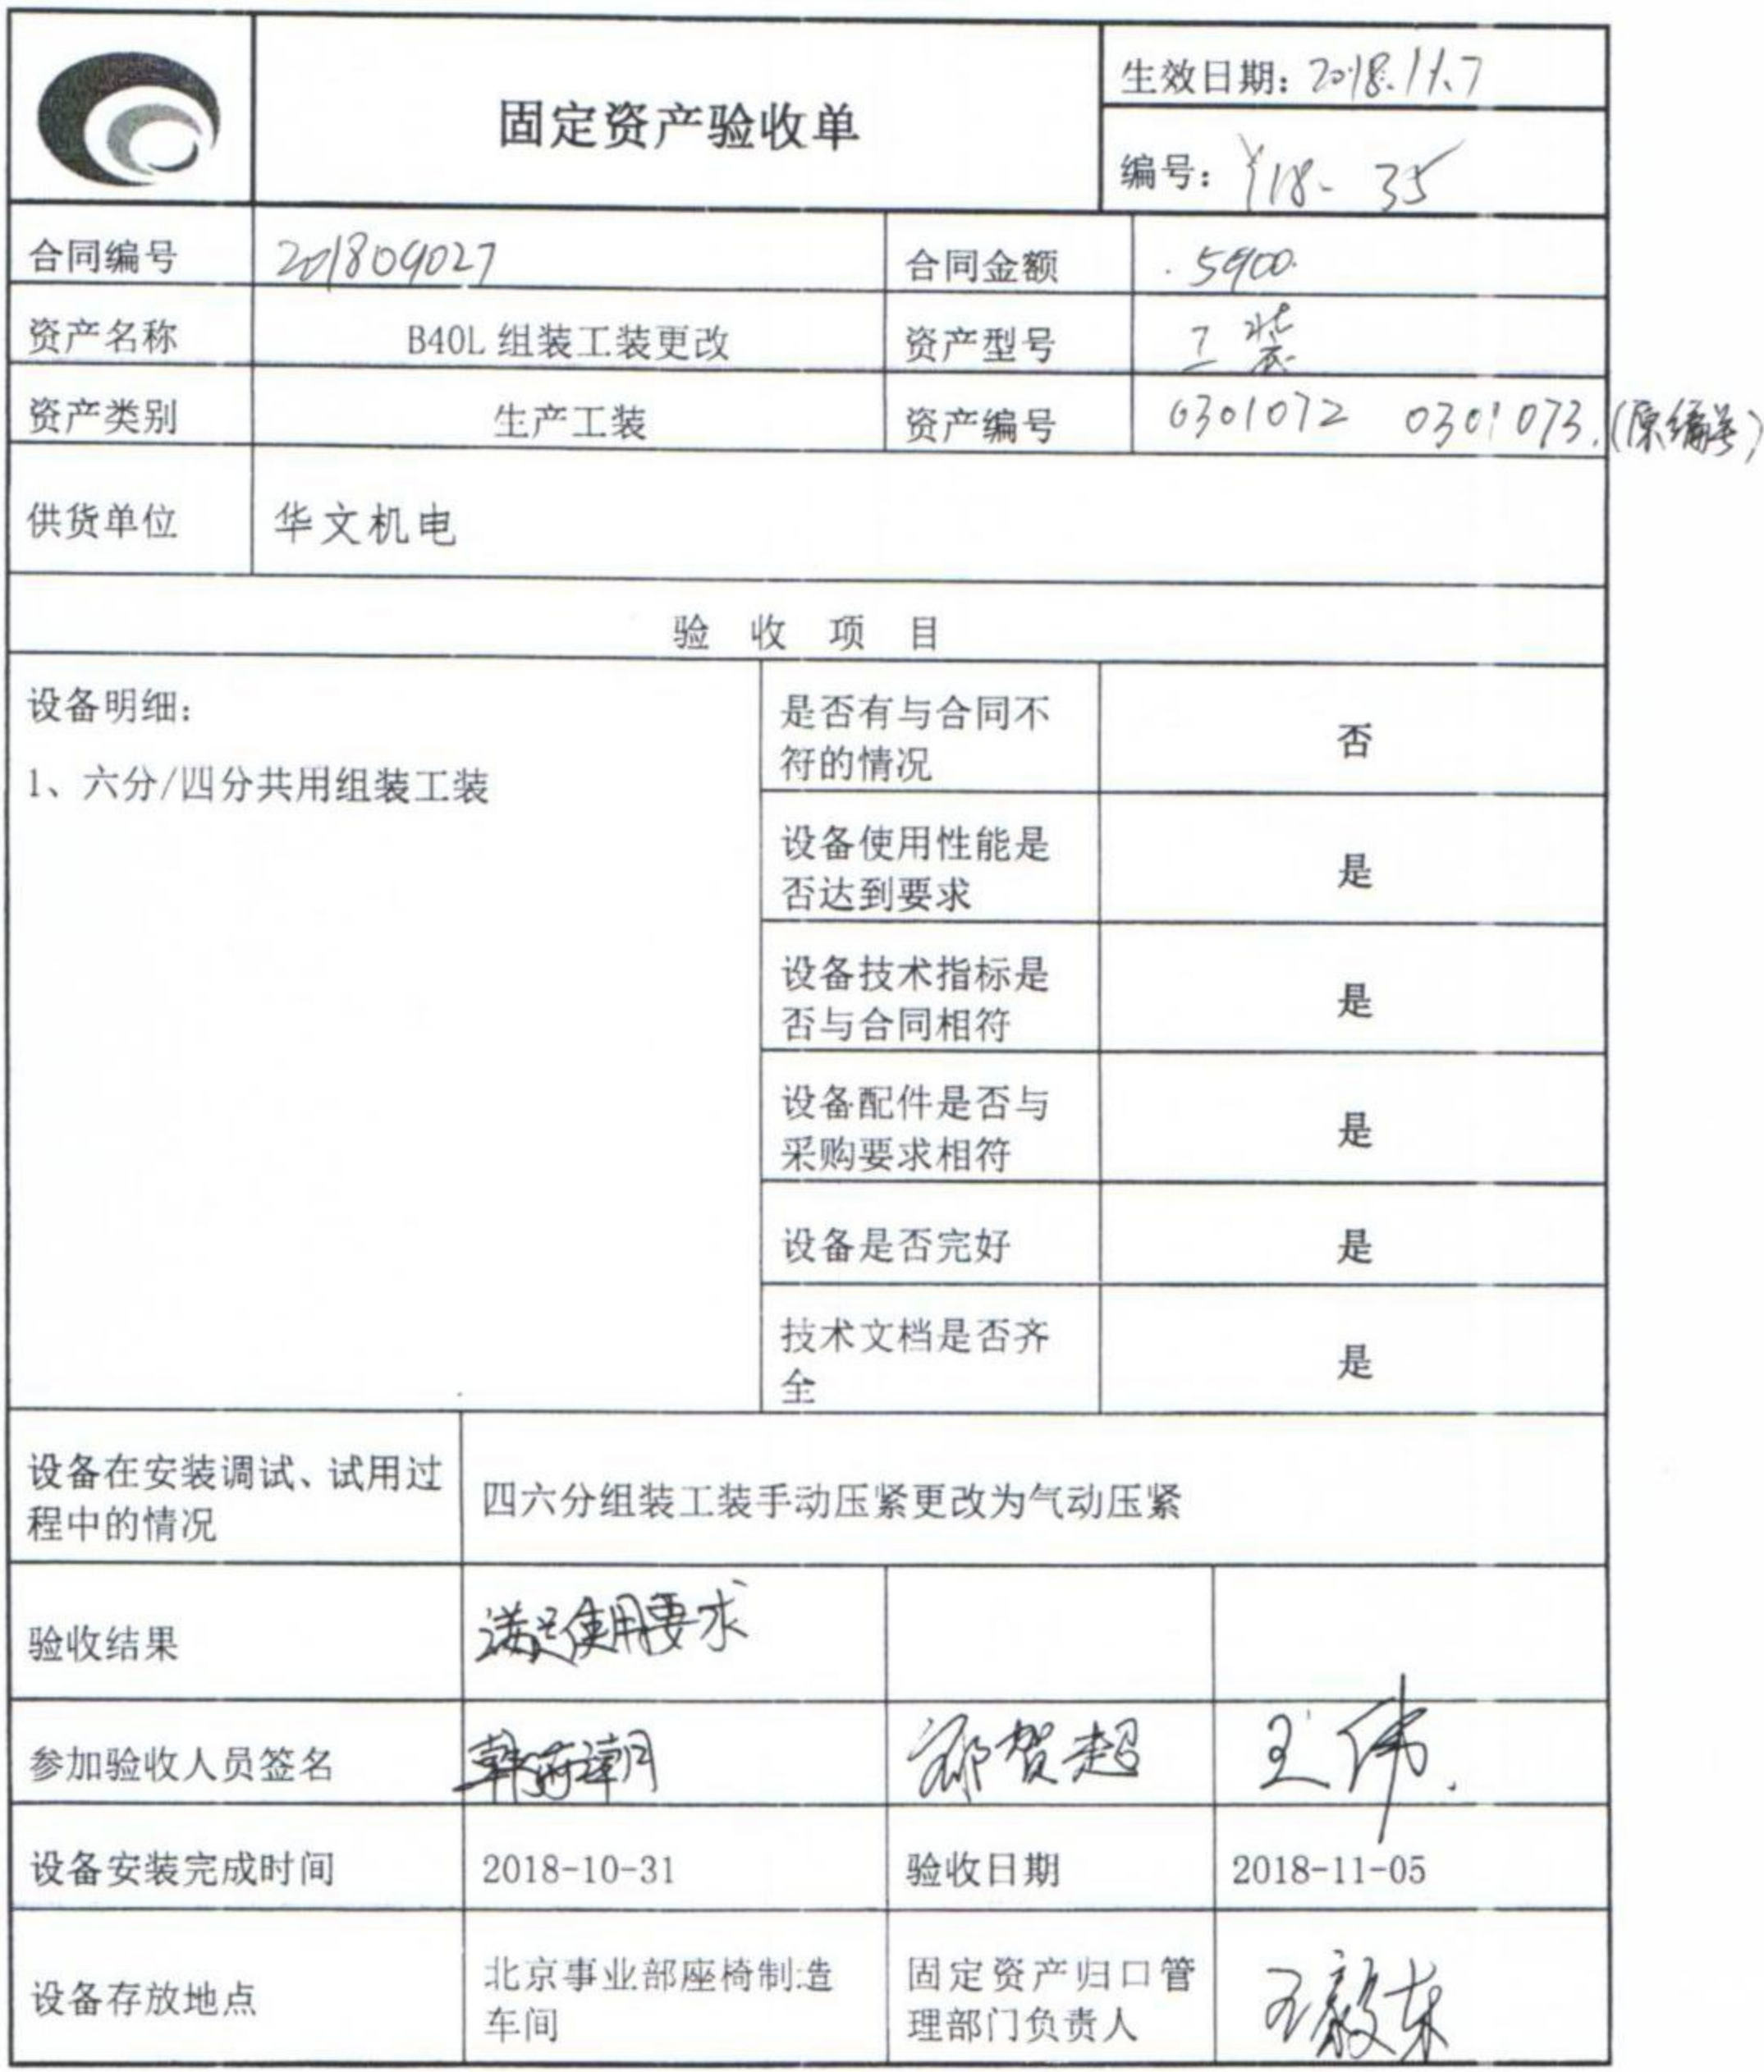 固定资产验收单
生效日期：2018.11.7
编号：Y18-35
合同编号 201809027 合同金额 5900.
资产名称 B40L 组装工装更改 资产型号 工装
资产类别 生产工装 资产编号 0301072 0301073.(原编号)
供货单位 华文机电
验 收 项 目
设备明细：
1、六分/四分共用组装工装
是否有与合同不
符的情况
否
设备使用性能是
否达到要求
是
设备技术指标是
否与合同相符
是
设备配件是否与
采购要求相符
是
设备是否完好 是
技术文档是否齐
全
是
设备在安装调试、试用过
程中的情况
四六分组装工装手动压紧更改为气动压紧
验收结果 满足使用要求
参加验收人员签名 贺超 王伟.
设备安装完成时间 2018-10-31 验收日期 2018-11-05
设备存放地点
北京事业部座椅制造
车间
固定资产归口管
理部门负责人
王毅东